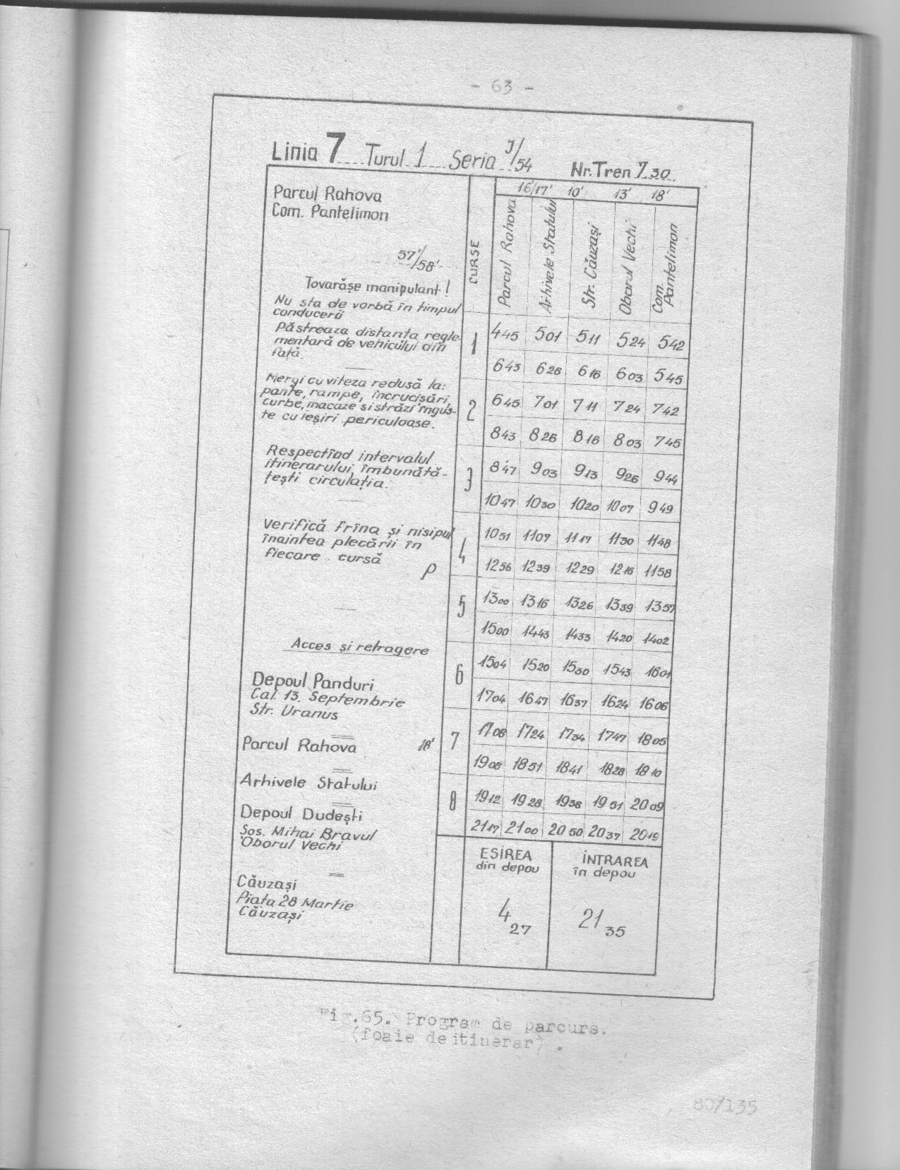 - 63 -
Linia 7 Turul 1 Seria J/54 Nr. Tren 7.30
Parcul Rahova
Com. Pantelimon
57'/58'
Tovarășe manipulant !
Nu sta de vorbă în timpul
conducerii
Păstreaza distanta regle-
mentară de vehicului din
fată
Mergi cu viteza redusă la:
pante, rampe, încrucișări,
curbe, macaze si străzi îngus-
te cu ieșiri periculoase.
Respectînd intervalul
itinerarului îmbunătă-
țești circulația.
Verifică frîna și nisipul
înaintea plecării în
fiecare cursă
P
Acces și retragere
Depoul Panduri
Cal. 13. Septembrie
Str. Uranus
Parcul Rahova 18'
Arhivele Statului
Depoul Dudești
Șos. Mihai Bravul
Oborul Vechi
Căuzași
Piata 28 Martie
Căuzași
CURSE
16/17' 10' 13' 18'
Parcul Rahova Arhivele Statului Str. Căuzași Oborul Vechi Com. Pantelimon
1 445 501 511 524 542
643 626 616 603 545
2 645 701 711 724 742
843 826 816 803 745
3 847 903 913 926 944
1047 1030 1020 1007 949
4 1051 1107 1117 1130 1148
1256 1239 1229 1216 1158
5 1300 1316 1326 1339 1357
1500 1443 1433 1420 1402
6 1504 1520 1530 1543 1601
1704 1647 1637 1624 1606
7 1708 1724 1734 1747 1805
1908 1851 1841 1828 1810
8 1912 1928 1938 1951 2009
2117 2100 2050 2037 2019
ESIREA
din depou
INTRAREA
în depou
4 27
21 35
Fig.65. Program de parcurs.
(foaie de itinerar) .
80/135